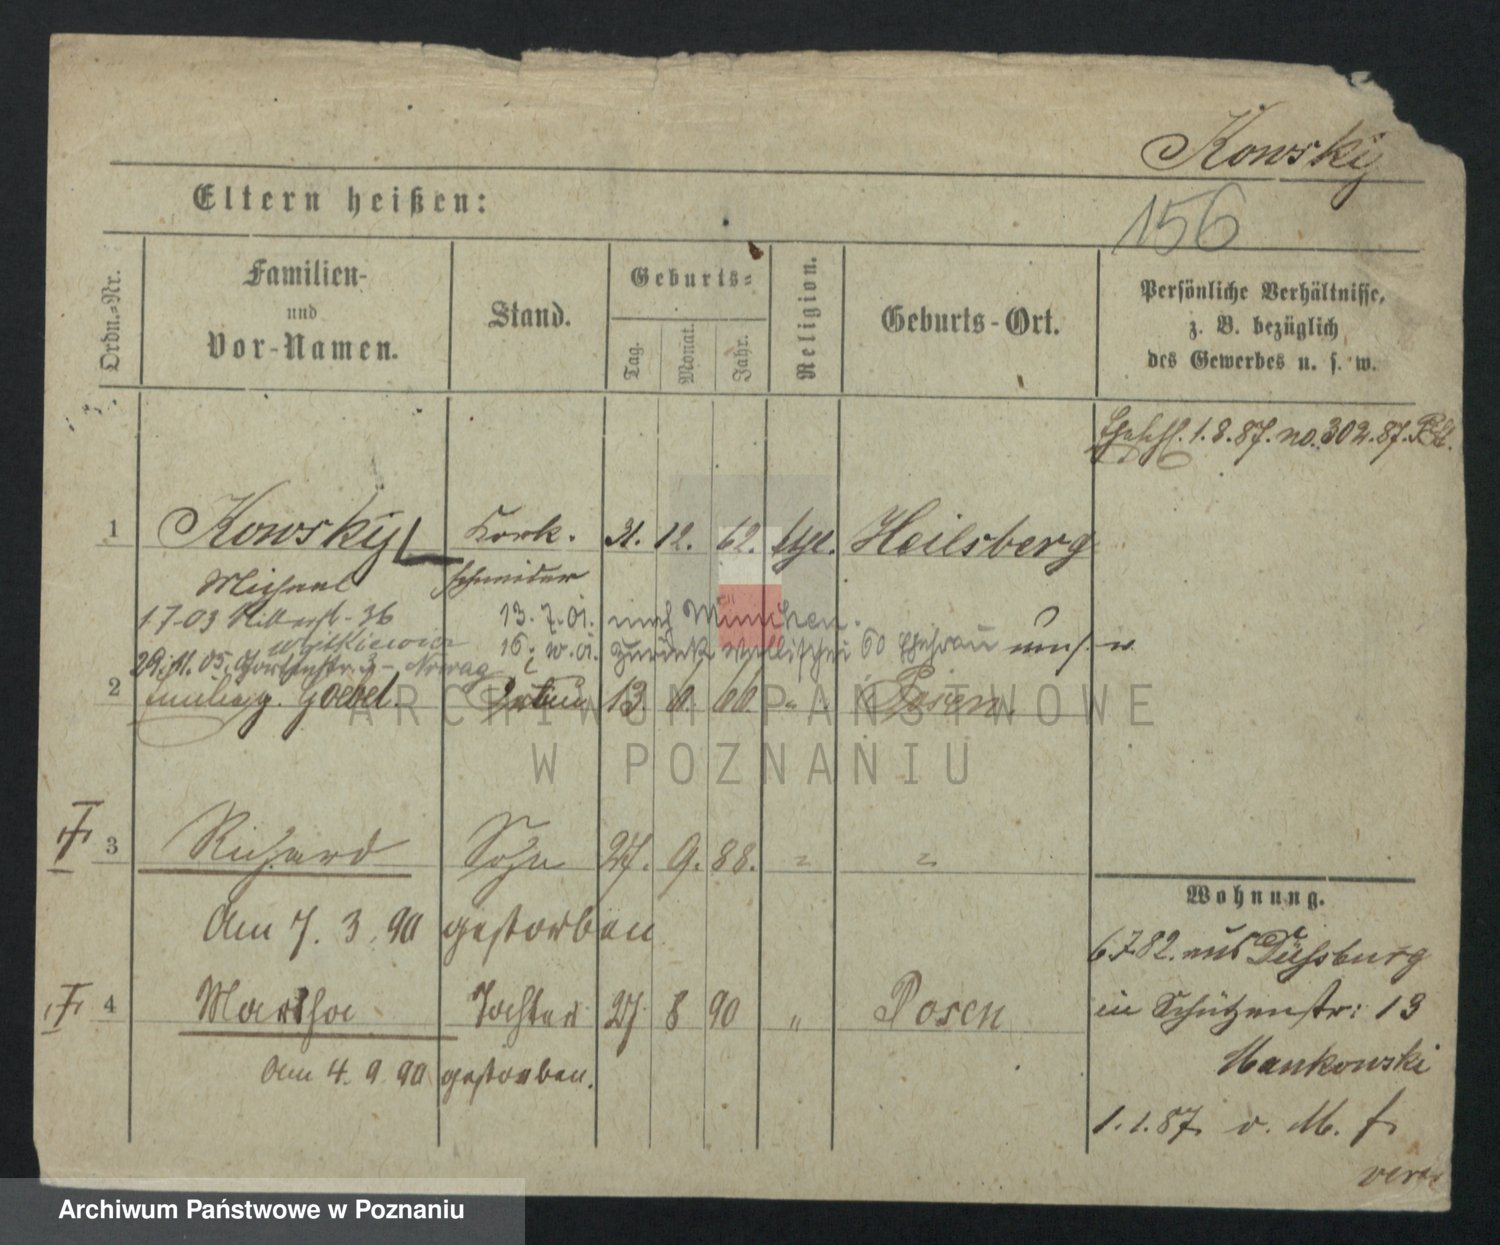 Kowsky
156
Eltern heißen:
Ordn.-Nr.
Familien- und Vor-Namen.
Stand.
Geburts-
Tag.
Monat.
Jahr.
Religion.
Geburts-Ort.
Persönliche Verhältnisse, z. B. bezüglich des Gewerbes u. s. w.
1.8.87. no. 302.87.
1 Kowsky Kork- 31. 12. 62. Heilsberg
Michael schneider
1 7 03 36 13. 7. 01. nach München.
Witkiewicz 15. zurück 60
05. 3 - Nowag
2 geb. Goebel. 13. 6. 66. " Posen
3 Richard Sohn 27. 9. 88. " "
Am 7. 3. 90 gestorben
4 Martha Tochter 27 8 90 " Posen
Am 4. 9. 90 gestorben.
Wohnung.
6 7 82. aus Duisburg
in Schützenstr: 13
Mankowski
1. 1. 87. v. M. f.
ARCHIWUM PAŃSTWOWE
W POZNANIU
Archiwum Państwowe w Poznaniu